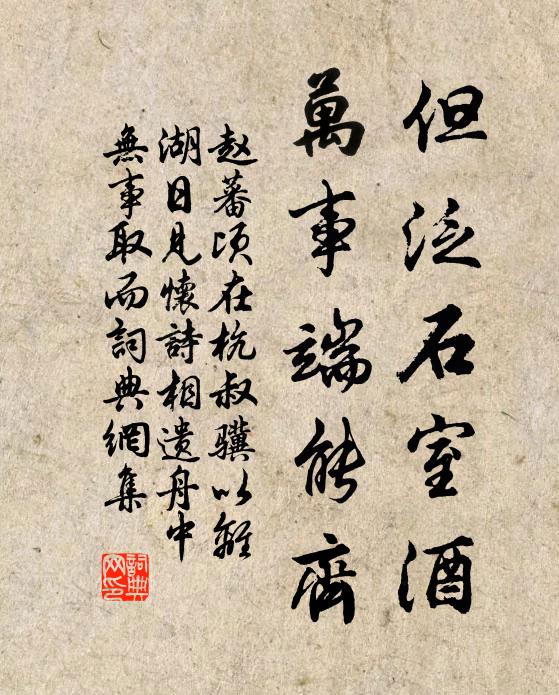 但泛石室酒
萬事端能齊
赵蕃頃在杭叔驥以離
湖日見懷詩相遺舟中
無事取而詞典網集
詞典
网印